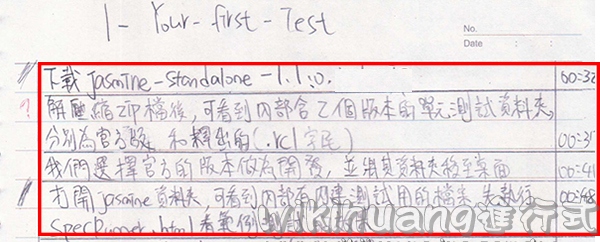 1 - Your - first - Test
No.
Date : :
下載 jasmine-standalone-1.1.0. 00:32
? 解壓縮 ZIP檔後, 可看到內部含2個版本的單元測試資料夾,
分別為官方版 和釋出的(.rc1字尾) 00:3
我們選擇官方的版本做為開發, 並將其資料夾移至桌面 00:41
打開jasmine資料夾, 可看到內部有內建測試用的檔案, 先執行 00:48
SpecRunner.html 看範例
wikihuang進行式